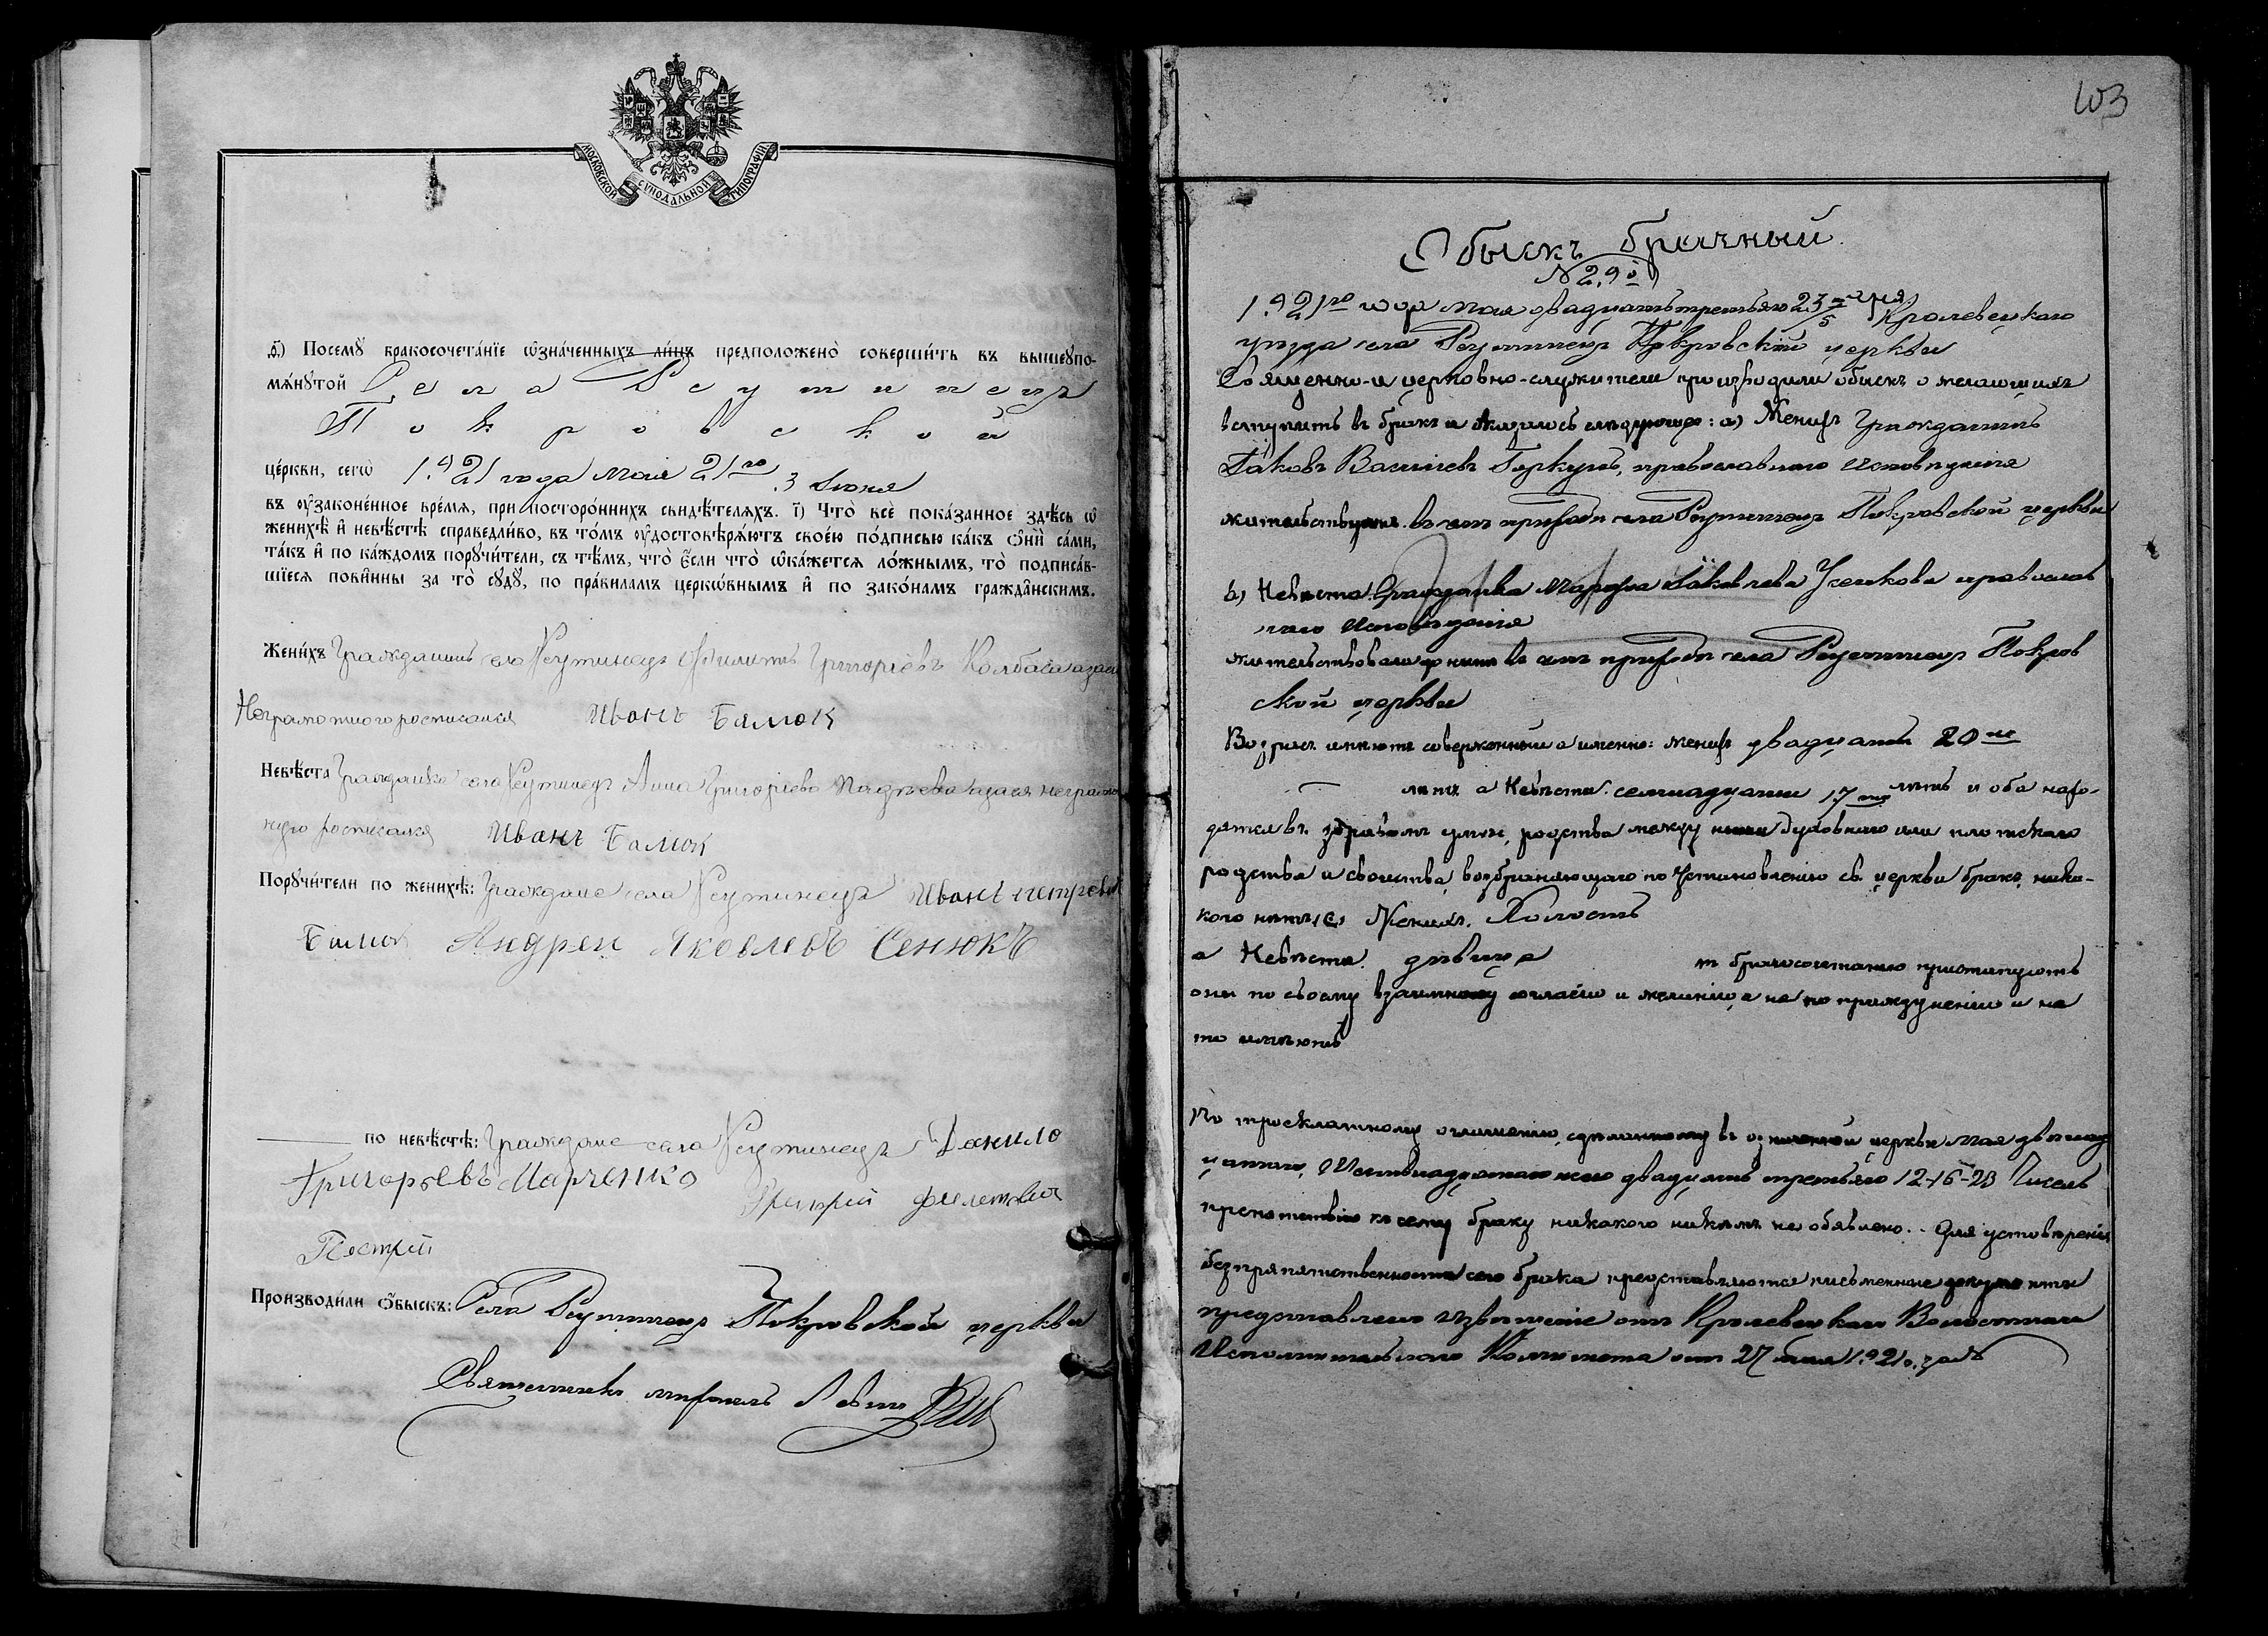 МОСКОВСКОЙ СУНОДАЛЬНОЙ ТИПОГРАФІИ
Посемꙋ̀ бракосочета́нїе ѡ҆зна́ченныхъ ли́цъ предположено̀ соверши́ть въ вышеꙋпо-
мѧ́нꙋтой Села Реутинецъ
Покровской
це́ркви, сегѡ̀ 1921 года мая 21го 3 Іюня
въ ᲂу҆законе́нное вре́мѧ, при посторо́ннихъ свидѣ́телѧхъ. і҃) Что̀ всѐ пока́занное здѣ́сь ѡ҆
женихѣ̀ и҆ невѣ́стѣ справедли́во, въ то́мъ ᲂу҆достовѣрѧ́ютъ свое́ю по́дписью ка́къ ѻ҆нѝ са́ми,
та́къ и҆ по ка́ждомъ порꙋчи́тели, съ тѣ́мъ, что̀ є҆́сли что̀ ѡ҆ка́жетсѧ ло́жнымъ, то̀ подписа́в-
шїесѧ пови́нны за то̀ сꙋдꙋ̀, по пра́виламъ церкѡ́внымъ и҆ по зако́намъ гражда́нскимъ.
Жени́хъ Гражданинъ села Реутинецъ Филипъ Григоріевъ Колбаса а за его
Неграмотного росписался Иванъ Бамок
Невѣ́ста Гражданка села Реутинецъ Анна Григоріева а за ея неграмо
ную росписался Иванъ Бамок
Порꙋчи́тели по женихѣ̀: Граждане села Реутинецъ Иванъ Петровъ
Бамок Андрей Яковлевъ Сенюкъ
по невѣ́стѣ: Граждане села Реутинецъ Данило
Григорьевъ Марченко Григорій Филетовъ
Пестрій
Производи́ли ѻ҆́быскъ: Села Реутинецъ Покровской церкви
Священникъ Левъ
103
Обыскъ брачный
№ 29й
1921го года мая двадцатьтретьяго 23/5 дня Кролевецкаго
уѣзда села Реутинецъ Покровской церкви
Священно-и церковно-служители производили обыскъ о желающихъ
вступить въ бракъ и оказалось слѣдующее: а) Женихъ Гражданинъ
Іаковъ Василіевъ Горкунъ, православнаго исповѣданія
жительствуетъ въ семъ приходѣ села Реутинецъ Покровской церкви
б) Невѣста Гражданка Марѳа Іаковлева Усенкова православ
наго исповѣданія
жительствовала до нынѣ въ семъ приходѣ села Реутинецъ Покров
ской церкви
Возрастъ имѣютъ совершенный а именно: женихъ двадцати 20ти
лѣтъ а Невѣста семнадцати 17ти лѣтъ и оба нахо-
дятся въ здравомъ умѣ, родства между ними духовнаго или плотскаго
родства и свойства возбраняющаго по установленію св. церкви бракъ, ника-
кого нѣтъ; Женихъ Холостъ
а Невѣста дѣвица къ бракосочетанію приступаютъ
они по своему взаимному согласію и желанію, а не по принужденію и на
то имѣютъ
По троекратному оглашенію, сдѣланному въ означенной церкви мая двѣнад
цатаго, шестьнадцатаго двадцать третьяго 12-16-23 Чиселъ
препятствію къ сему браку никакого никѣмъ не объявлено. Для
безпрепятственности сего брака представляются письменные документы
предоставлено извѣщеніе отъ Кролевецкаго Волостнаго
Исполнительнаго Комитета отъ 27 мая 1921 года